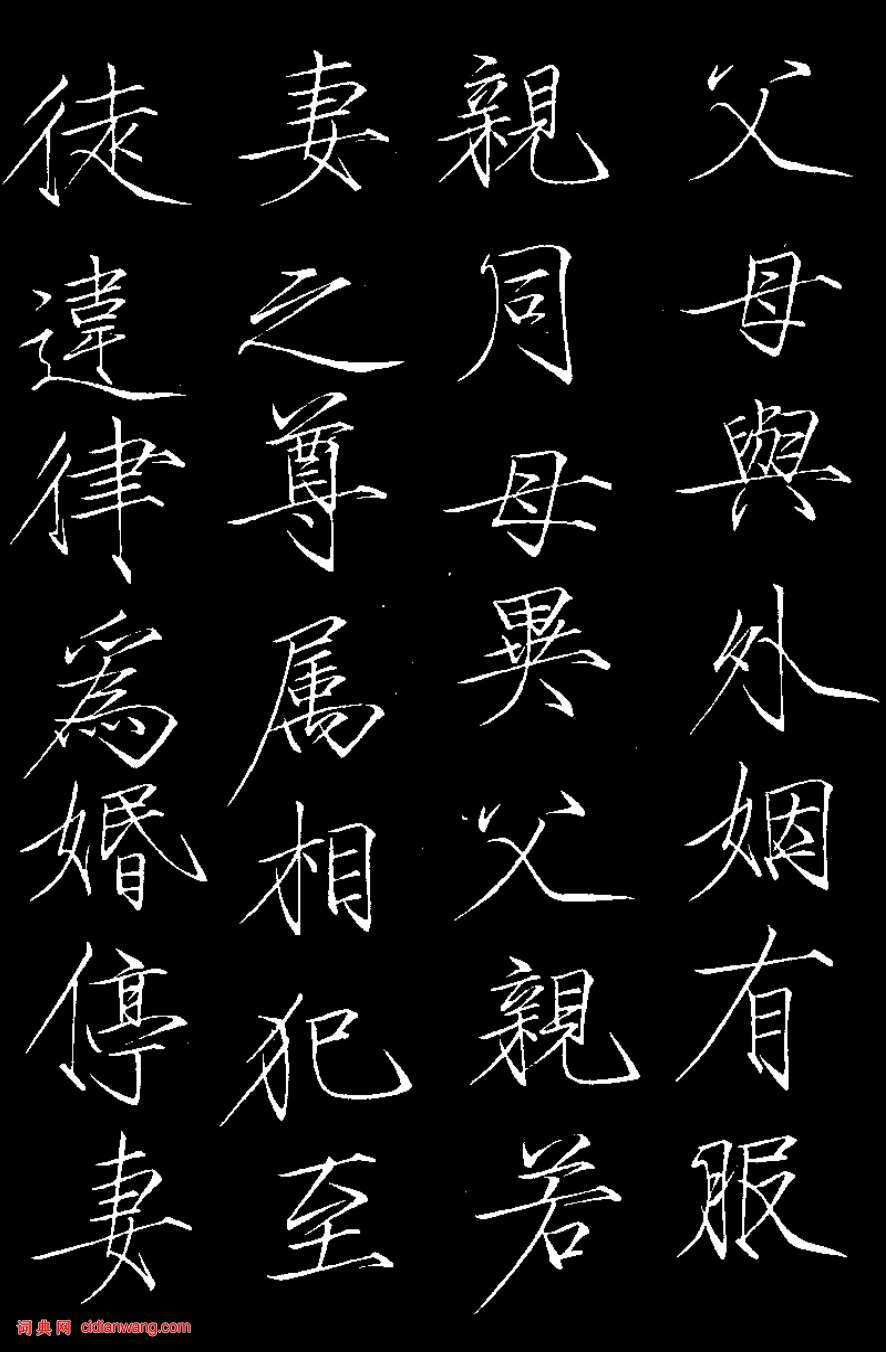 父母與外姻有服
親同母異父親若
妻之尊属相犯至
徒違律爲婚停妻
词典网 cidianwang.com